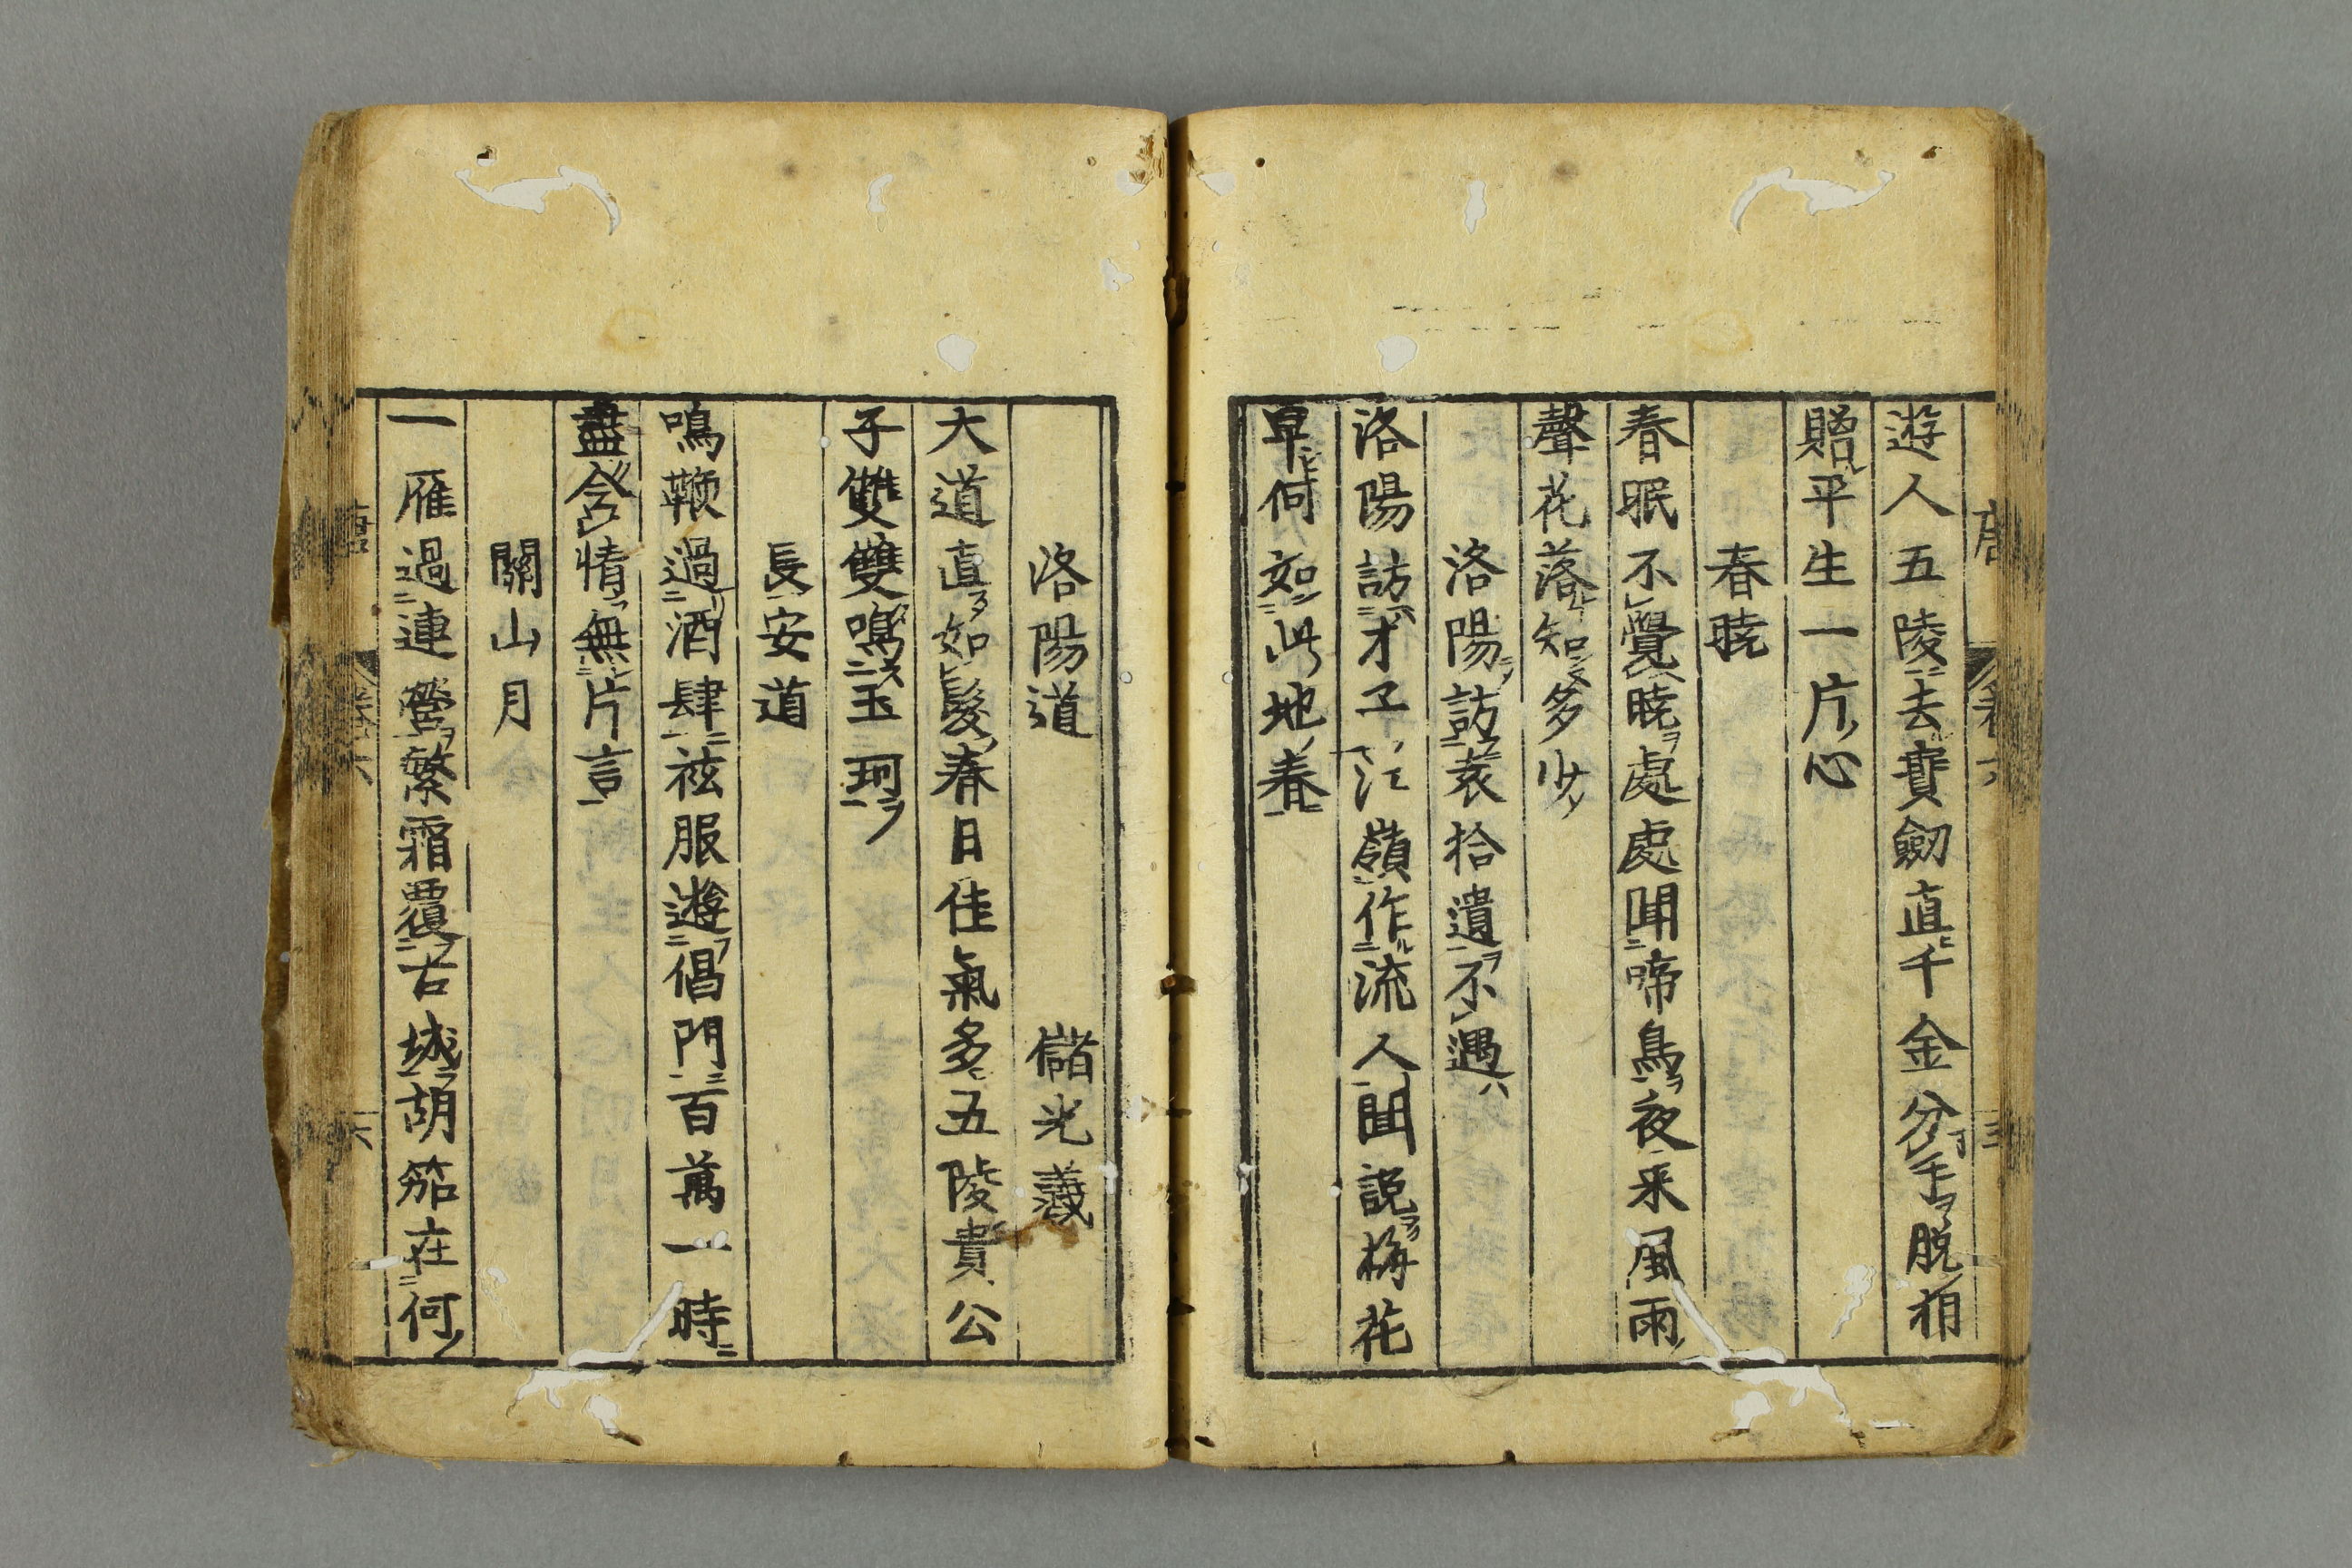 遊人五陵去寶劒直千金分手脱相
贈平生一片心
春暁
春眠不覺暁處處聞啼鳥夜来風雨
聲花落知多少
洛陽訪袁拾遺不遇
洛陽訪才子江嶺作流人聞説梅花
早何如此地春
洛陽道 儲光羲
大道直如髮春日佳氣多五陵貴公
子雙雙鳴玉珂
長安道
鳴鞭過酒肆袨服遊倡門百萬一時
盡含情無片言
關山月
一雁過連營繁霜覆古城胡笳在何